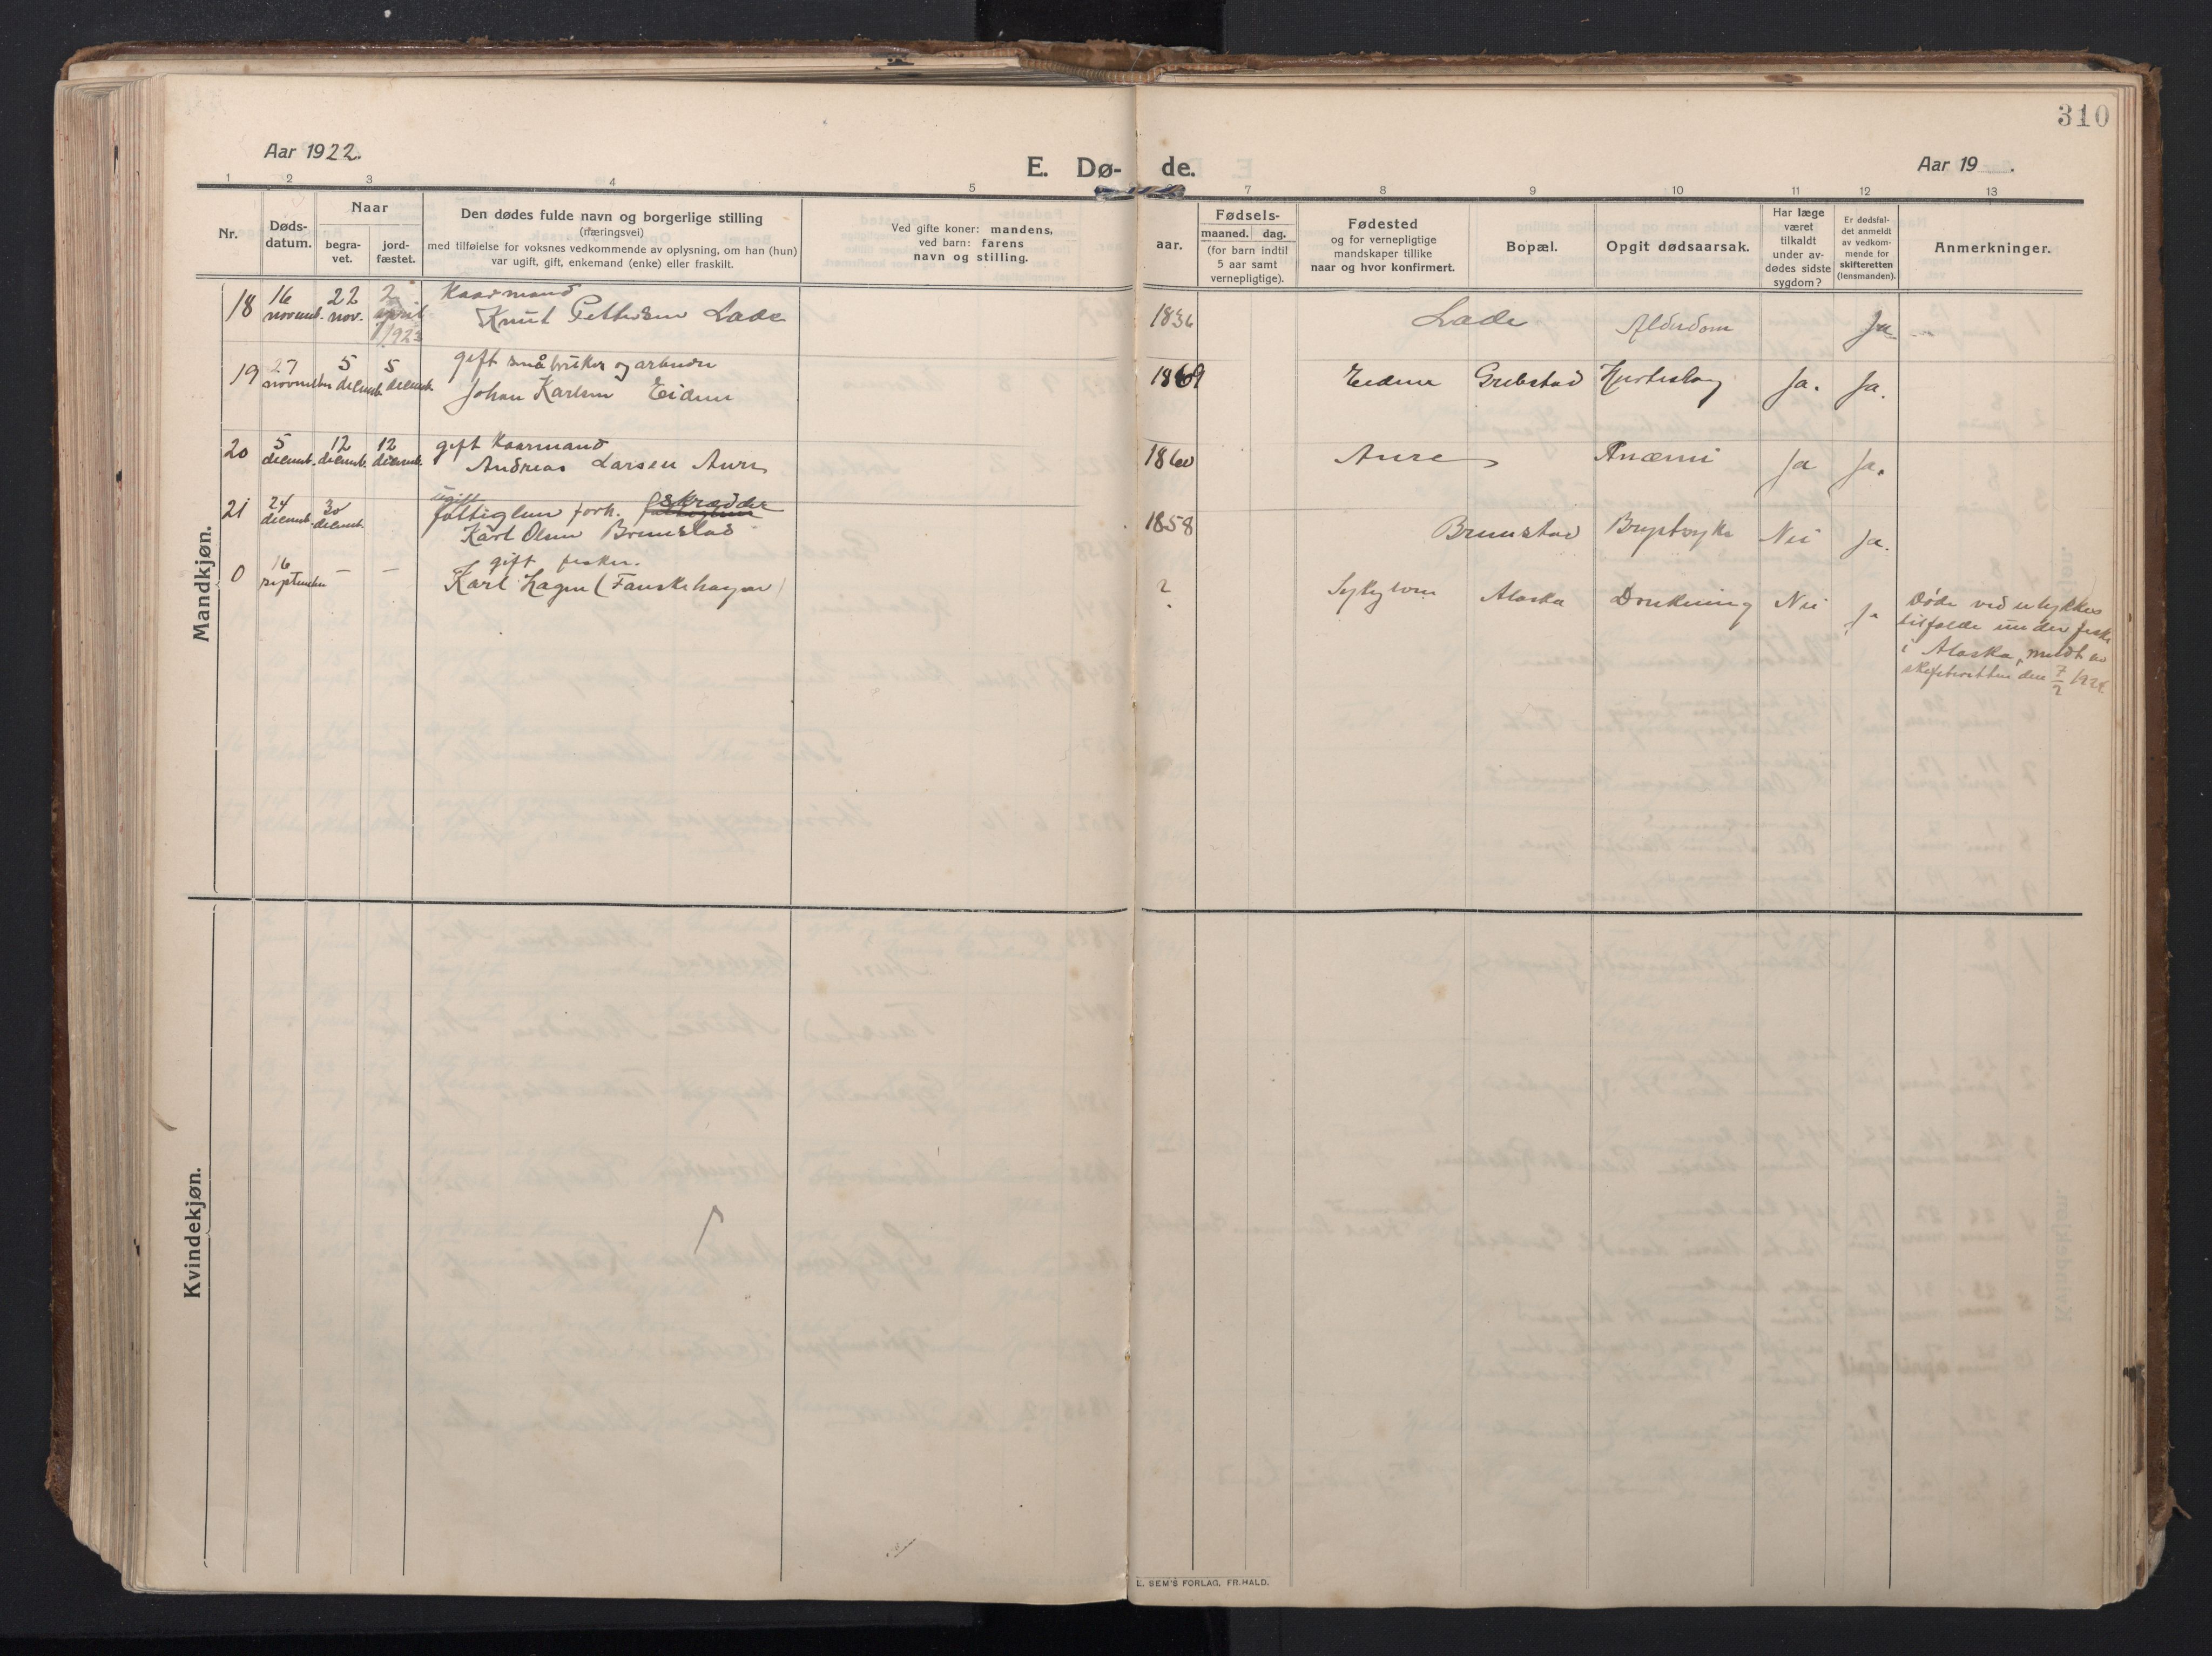 310
Aar 1922.
E. Dø- de.
Aar 19 .
1 2 3 4 5 7 8 9 10 11 12 13
Nr.
Døds-
datum.
Naar
begra-
vet.
jord-
fæstet.
Den dødes fulde navn og borgerlige stilling
(næringsvei)
med tilføielse for voksnes vedkommende av oplysning, om han (hun)
var ugift, gift, enkemand (enke) eller fraskilt.
Ved gifte koner: mandens,
ved barn: farens
navn og stilling.
aar.
Fødsels-
maaned. dag.
(for barn indtil
5 aar samt
vernepligtige).
Fødested
og for vernepligtige
mandskaper tillike
naar og hvor konfirmert.
Bopæl.
Opgit dødsaarsak.
Har læge
været
tilkaldt
under av-
dødes sidste
sygdom?
Er dødsfal-
det anmeldt
av vedkom-
mende for
skifteretten
(lensmanden).
Anmerkninger.
Mandkjøn.
18 16 novemb. 22 nov. 2 april 1923
Kaarmand
Knut Pettersen Lade
1836 Lade Alderdom Ja
19 27 november 5 decemb. 5 decemb.
gift småbruker og arbeider
Johan Karlsen Eidem
1869 Eidem Grebstad Hjerteslag Ja. Ja.
20 5 decemb. 12 decemb. 12 decemb.
gift Kaarmand
Andreas Larsen Aure
1860 Aure Anæmi Ja Ja.
21 24 decemb. 30 decemb.
ugift
fattiglem forh. skrædder
Karl Olsen Brunstad
1858 Brunstad Brystsyke Nei Ja.
0 16 september — —
gift fisker.
Karl Hagen (Fauskehagen)
? Sykylven Alaska Drukning Nei Ja
Døde ved ulykkes
tilfælde under fiske
i Alaska, meldt av
skifteretten den 7/2 1924.
Kvindekjøn.
E. SEM'S FORLAG, FR.HALD.